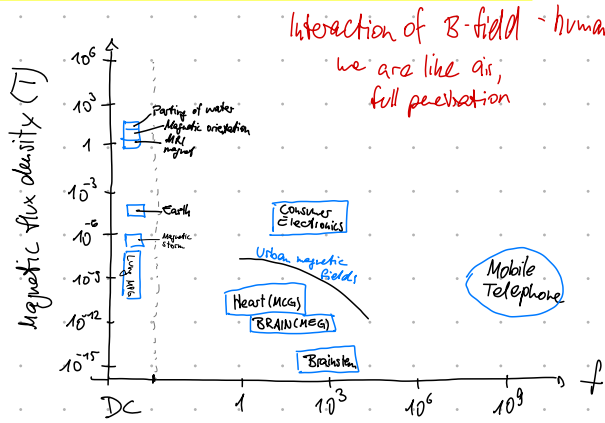 Interaction of B-field - human
we are like air,
full penetration
Magnetic flux density (T)
10⁶
10³
1
10⁻³
10⁻⁶
10⁻⁹
10⁻¹²
10⁻¹⁵
Parting of water
Magnetic orientation
MRI
magnet
Earth
Magnetic
storm
Consumer
Electronics
Urban magnetic
fields
Heart (MCG)
BRAIN (MEG)
Brainstem
Mobile
Telephone
DC
1
10³
10⁶
10⁹
f